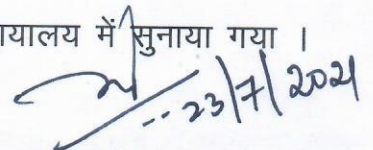 यालय में सुनाया गया ।
23/7/2021